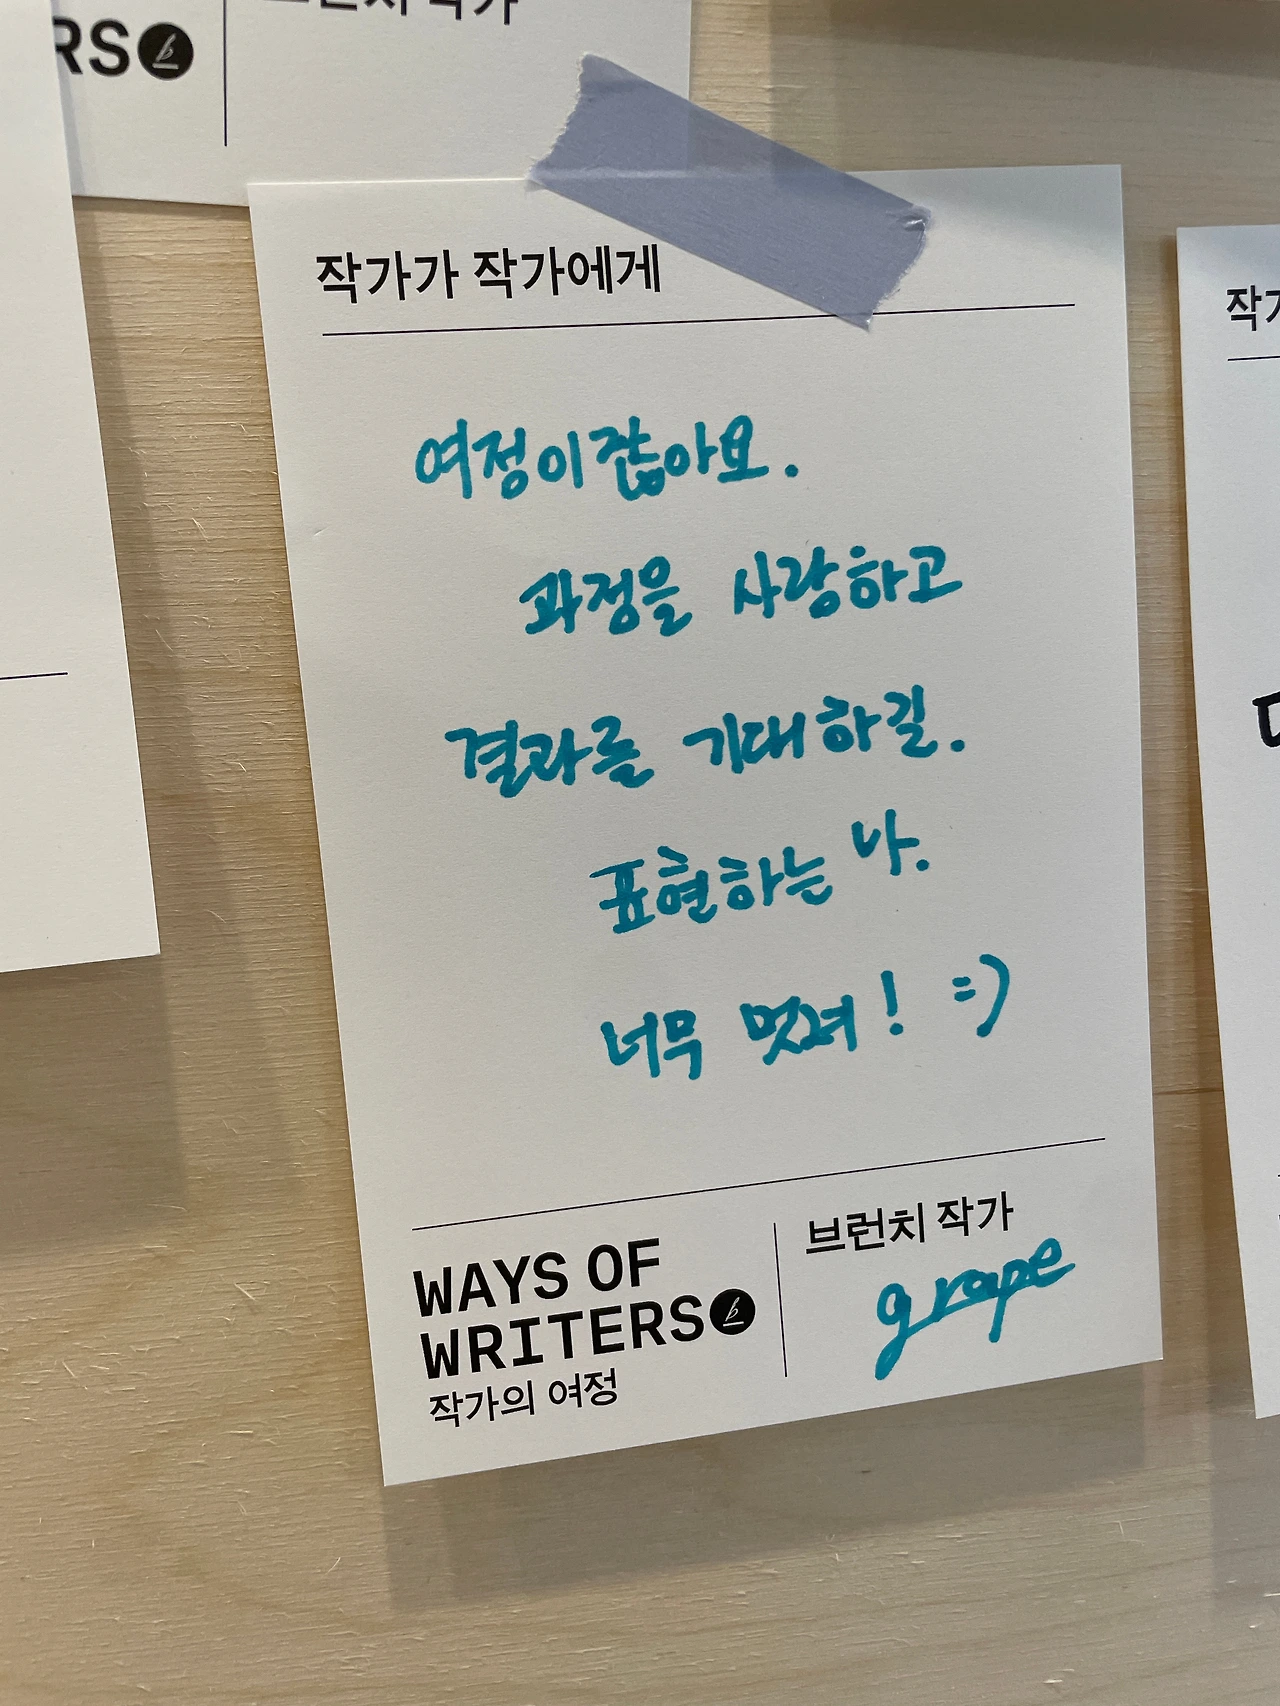 RS
브런치 작가
작가가 작가에게
여정이잖아요.
과정을 사랑하고
결과를 기대하길.
표현하는 나.
너무 멋져! =)
WAYS OF
WRITERS
작가의 여정
브런치 작가
grape
작가